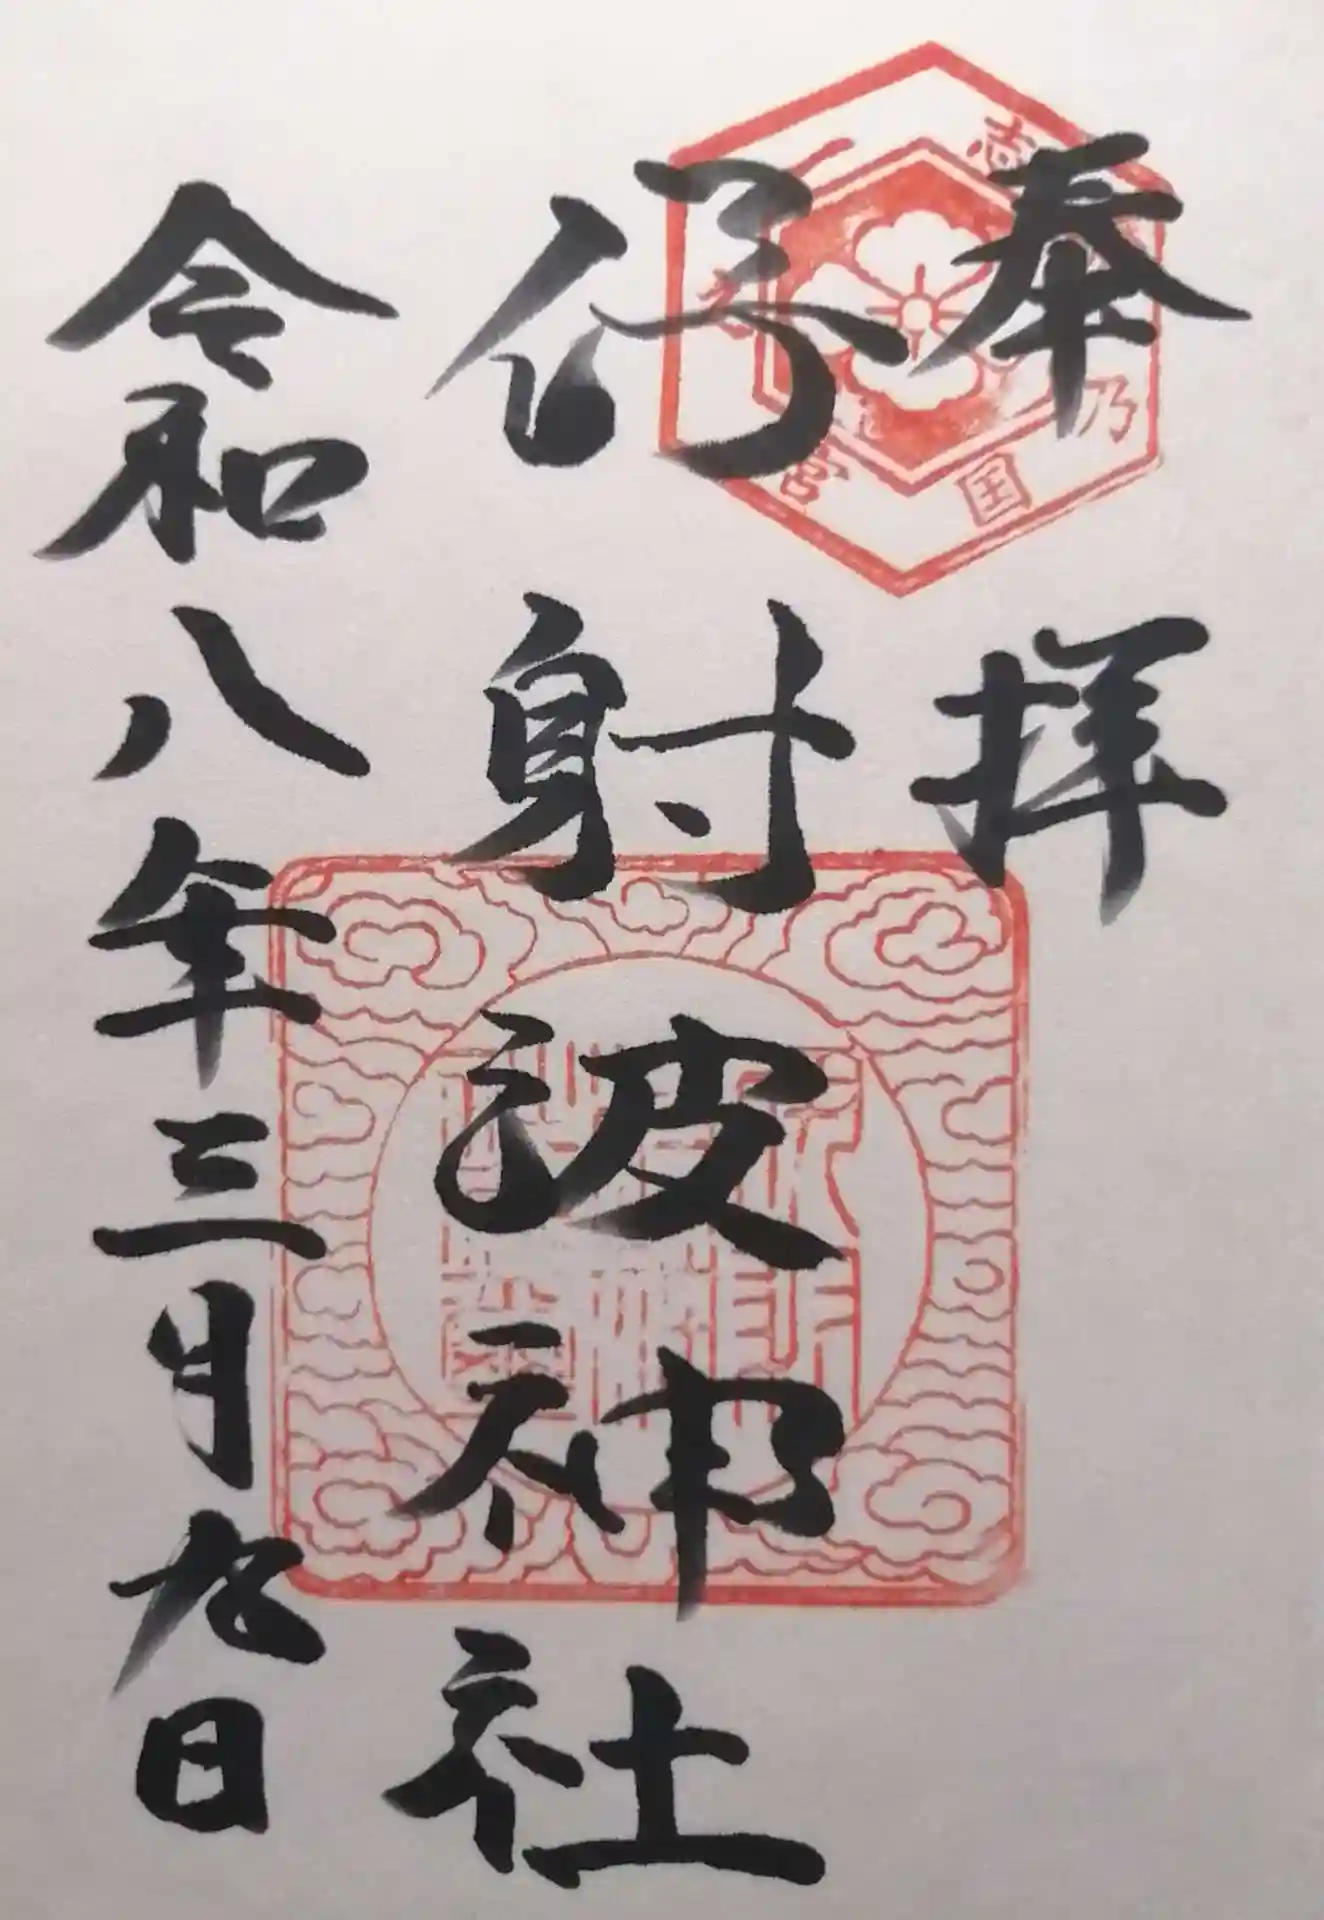 奉拝
伊射波神社
令和八年三月九日
志
乃国
宮